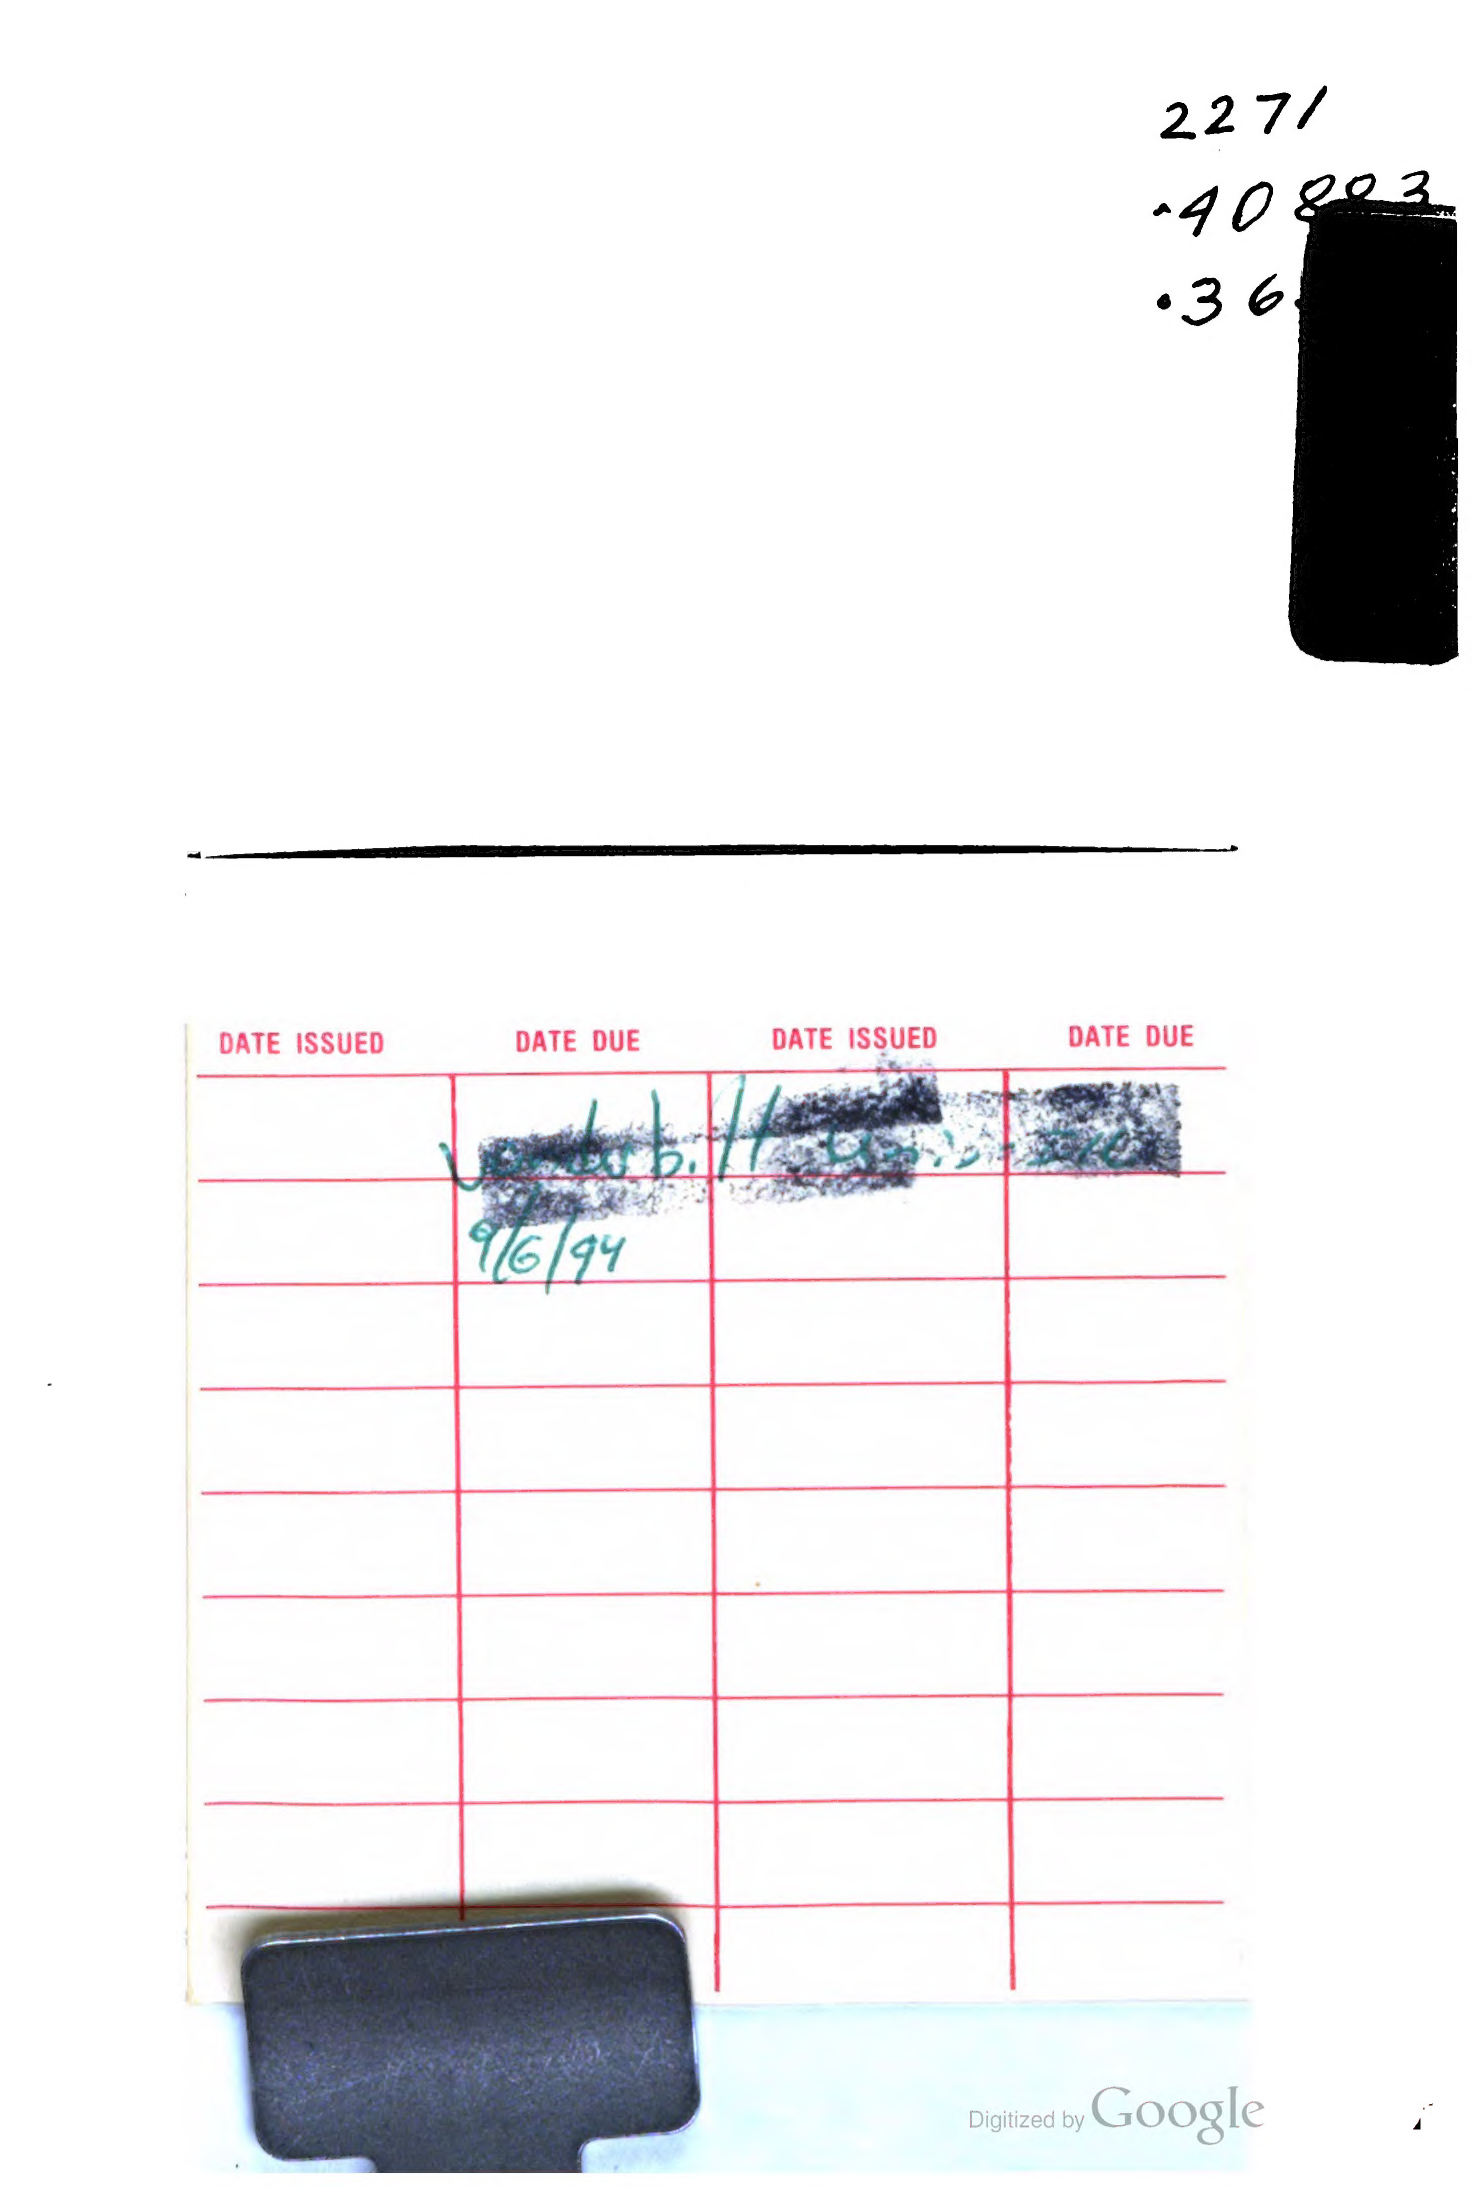 2271
.40893
.36
DATE ISSUED DATE DUE DATE ISSUED DATE DUE
Vanderbilt
9/6/94
Digitized by Google